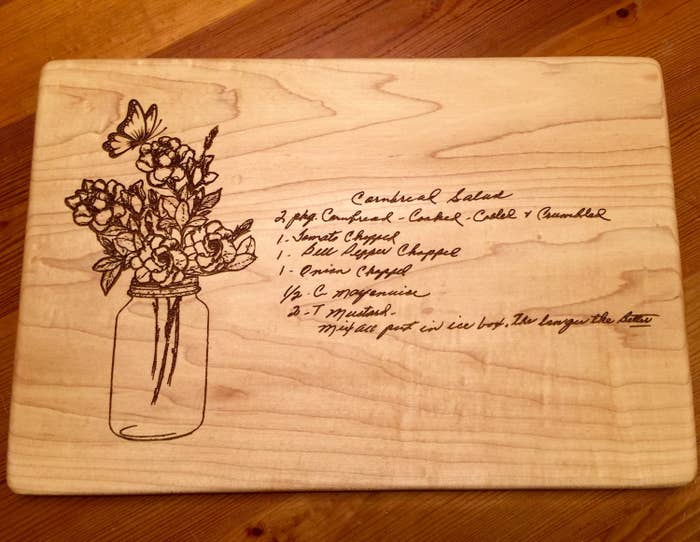 Cornbread Salad
2 pkg. Cornbread - Cooked - Cooled & Crumbled
1 - Tomato Chopped
1 - Bell Pepper Chopped
1 - Onion Chopped
1/2 - C Mayonaise
2 - T Mustard -
Mix all put in ice box. The longer the better